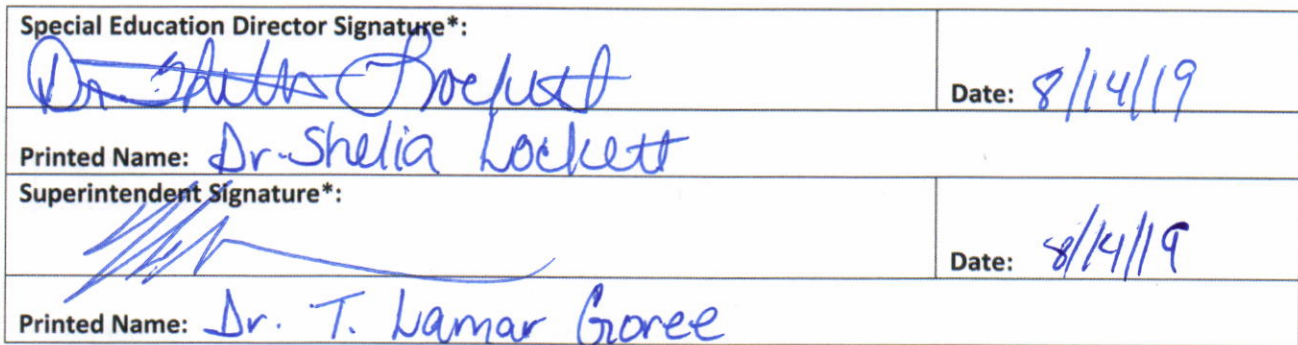 Special Education Director Signature*:
Dr. Shelia Lockett
Date: 8/14/19
Printed Name: Dr. Shelia Lockett
Superintendent Signature*:
Date: 8/14/19
Printed Name: Dr. T. Lamar Goree